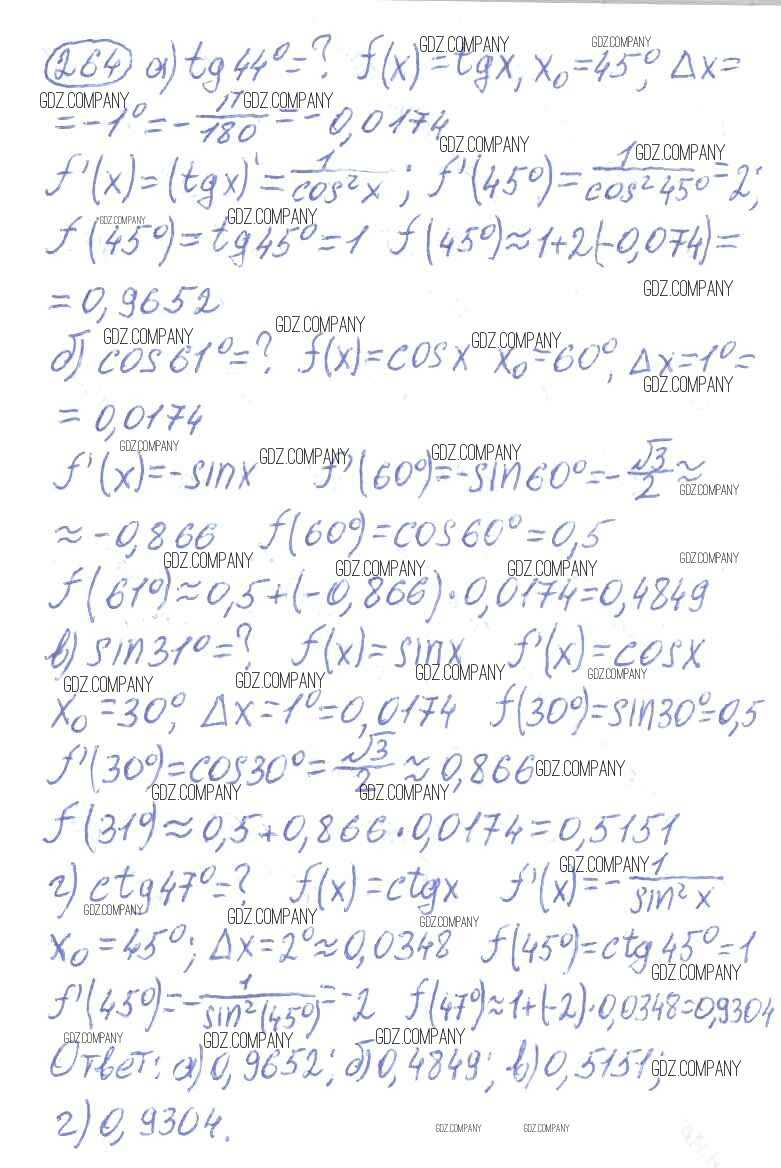 264 а) tg 44° = ? f(x) = tgx, x₀ = 45°, Δx =
= -1° = -π/180 = -0,0174
f'(x) = (tgx)' = 1/cos²x ; f'(45°) = 1/cos²45° = 2;
f(45°) = tg45° = 1 f(45°) ≈ 1+2(-0,074) =
= 0,9652
б) cos61° = ? f(x) = cosx x₀ = 60°, Δx = 1° =
= 0,0174
f'(x) = -sinx f'(60°) = -sin60° = -√3/2 ≈
≈ -0,866 f(60°) = cos60° = 0,5
f(61°) ≈ 0,5+(-0,866)·0,0174 = 0,4849
в) sin31° = ? f(x) = sinx f'(x) = cosx
x₀ = 30°, Δx = 1° = 0,0174 f(30°) = sin30° = 0,5
f'(30°) = cos30° = √3/2 ≈ 0,866
f(31°) ≈ 0,5+0,866·0,0174 = 0,5151
г) ctg47° = ? f(x) = ctgx f'(x) = -1/sin²x
x₀ = 45°; Δx = 2° ≈ 0,0348 f(45°) = ctg45° = 1
f'(45°) = -1/sin²(45°) = -2 f(47°) ≈ 1+(-2)·0,0348 = 0,9304
Ответ: а) 0,9652; б) 0,4849; в) 0,5151;
г) 0,9304.
GDZ.COMPANY